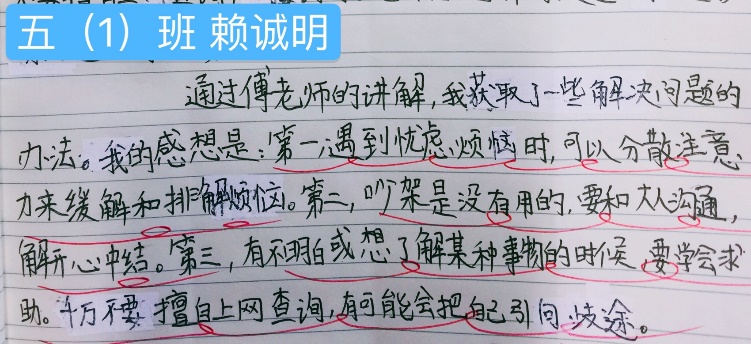 五（1）班 赖诚明
通过傅老师的讲解，我获取了一些解决问题的
办法。我的感想是：第一，遇到忧虑烦恼时，可以分散注意
力来缓解和排解烦恼。第二，吵架是没有用的，要和大人沟通，
解开心中结。第三，有不明白或想了解某种事物的时候，要学会求
助。千万不要擅自上网查询，有可能会把自己引向歧途。